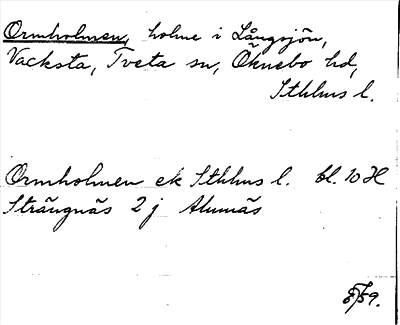 Ormholmen, holme i Långsjön,
Vacksta, Tveta sn, Öknebo hd,
Sthlms l.
Ormholmen ek Sthlms l. bl. 10 H
Strängnäs 2 j Alunäs